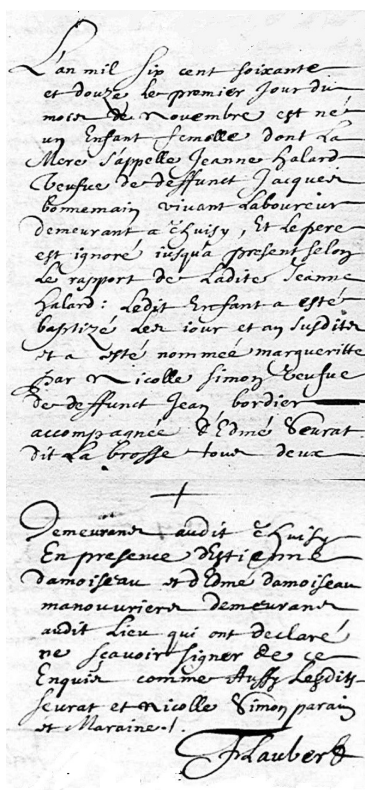 L'an mil six cent soixante
et douze le premier Jour du
mois de Novembre est né
un Enfant femelle dont La
Mere s'appelle Jeanne halard
Veufue de deffunct Jacques
bonnemain vivant Laboureur
demeurant a Thuisy, Et le pere
est ignoré iusqu'a present selon
Le rapport de Ladite Jeanne
halard: Ledit Enfant a esté
baptizé Les iour et an susdits
et a esté nommeé margueritte
par Nicolle Simon Veufue
de deffunct Jean bordier
accompagnée d'Edmé Seurat
dit La brosse tous deux
Demeurans audit Thuisy
En presence d'Estienne
damoiseau et d'Edme damoiseau
manouvriers demeurans
audit Lieu qui ont declaré
ne scavoir signer de ce
Enquis comme Aussy Lesdits
seurat et Nicolle Simon parain
et Maraine.
Flaubert